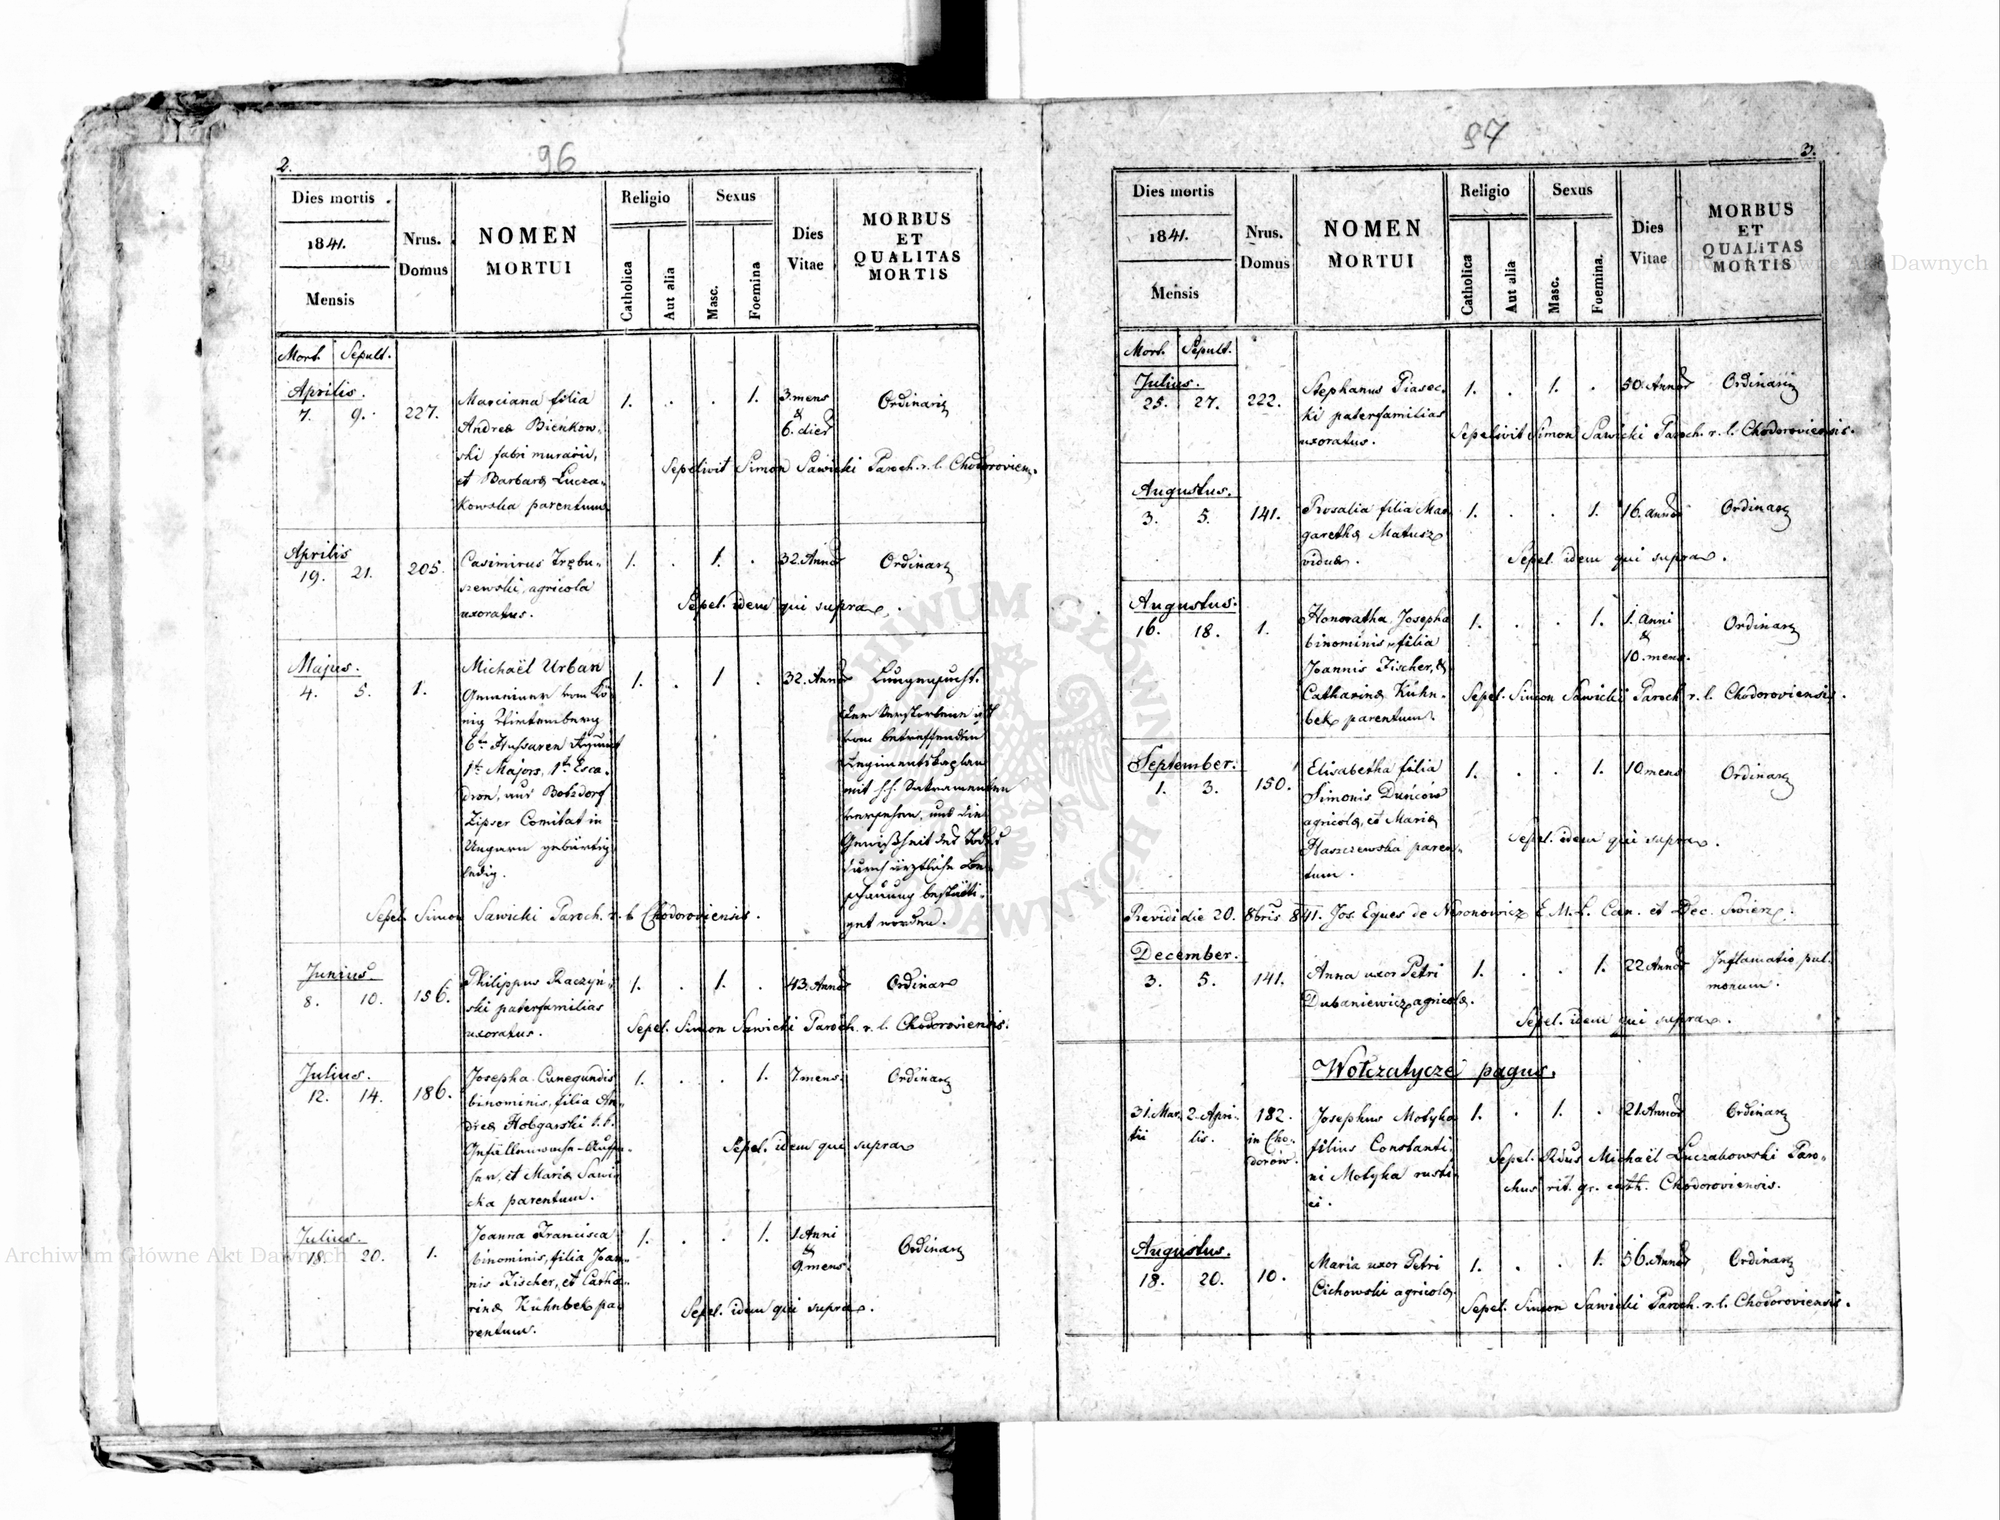 2.
96
Dies mortis
1841.
Mensis
Nrus.
Domus
NOMEN
MORTUI
Religio
Catholica
Aut alia
Sexus
Masc.
Foemina
Dies
Vitae
MORBUS
ET
QUALITAS
MORTIS
Mort. Sepult.
Aprilis.
7. 9. 227.
Marciana filia
Andreæ Bieńkow-
ski fabri murarii,
et Barbaræ Łucza-
kowska parentum.
1. . . 1.
3. mens
&
6. dier
Ordinaria
Sepelivit Simon Sawicki Paroch. r. l. Chodoroviens.
Aprilis
19. 21. 205.
Casimirus Trębu-
szewski, agricola
uxoratus.
1. . 1. .
32. Annor
Ordinaria
Sepel. idem qui supra.
Majus.
4. 5. 1.
Michaël Urban
Gemeiner vom Kö-
nig Wirtemberg
6ten Hussaren Regiment
1te Majors, 1te Esca-
dron, aus Botzdorf
Zipser Comitat in
Ungarn gebürtig
ledig.
1. . 1 .
32. Annor
Lungensucht.
Der Verstorbene ist
vom betreffenden
Regimentskaplan
mit h.h. Sakramenten
versehen, und die
Gewißheit des Todes
durch ärztliche Be-
schauung bestätti-
get worden.
Sepel. Simon Sawicki Paroch. r. l. Chodoroviensis.
Junius
8. 10. 156.
Philippus Raczyń-
ski paterfamilias
uxoratus.
1. . 1. .
43. Annor
Ordinar
Sepel. Simon Sawicki Paroch. r. l. Chodoroviensis.
Julius.
12. 14. 186.
Josepha Cunegundis
binominis, filia An-
dreæ Hobgarski k.k.
Gefällenwache-Aufse-
her, et Mariæ Sawic-
ka parentum.
1. . . 1.
7 mens.
Ordinaria
Sepel. idem qui supra
Julius.
18. 20. 1.
Joanna Francisca
binominis, filia Joan-
nis Fischer, et Catha-
rinæ Kühnbek pa-
rentum.
1. . . 1.
1 Anni
&
9. mens.
Ordinaria
Sepel. idem qui supra.
97
3.
Dies mortis
1841.
Mensis
Nrus.
Domus
NOMEN
MORTUI
Religio
Catholica
Aut alia
Sexus
Masc.
Foemina.
Dies
Vitae
MORBUS
ET
QUALITAS
MORTIS
Mort. Sepult.
Julius.
25. 27. 222.
Stephanus Piasec-
ki paterfamilias
uxoratus.
1. . 1. .
50. Annor
Ordinaria
Sepelivit Simon Sawicki Paroch. r. l. Chodoroviensis.
Augustus.
3. 5. 141.
Rosalia filia Mar-
garethæ Matusz
viduæ.
1. . . 1.
16. annor
Ordinaria
Sepel. idem qui supra.
Augustus.
16. 18. 1.
Honoratha Josepha
binominis, filia
Joannis Fischer, &
Catharinæ Kühn-
bek parentum.
1. . . 1.
1. Anni
&
10. mens.
Ordinaria
Sepel. Simon Sawicki Paroch r. l. Chodoroviensis.
September.
1. 3. 150.
Elisabetha filia
Simonis Duńcow
agricolæ, et Mariæ
Haszczewska paren-
tum.
1. . . 1.
10 mens
Ordinaria
Sepel. idem qui supra.
Revidi die 20. 8bris 841. Jos. Eques de Nironowicz E. M. L. Can. et Dec. Swierz.
December.
3. 5. 141.
Anna uxor Petri
Dubaniewicz agricolæ.
1. . . 1.
22. Annor
Inflamatio pul-
monum.
Sepel. idem qui supra.
Wołczatycze pagus.
31. Mar- 2. Apri- 182.
tii lis. in Cho-
dorów.
Josephus Motyka
filius Constanti-
ni Motyka rusti-
ci.
1. . 1. .
21. Annor
Ordinaria
Sepel. Rdus Michaël Łuczakowski Paro-
chus rit. gr. cath. Chodoroviensis.
Augustus.
18. 20. 10.
Maria uxor Petri
Cichowski agricolæ
1. . . 1.
56. Annor
Ordinaria
Sepel. Simon Sawicki Paroch. r. l. Chodoroviensis.
Archiwum Główne Akt Dawnych
Archiwum Główne Akt Dawnych
ARCHIWUM GŁÓWNE AKT DAWNYCH